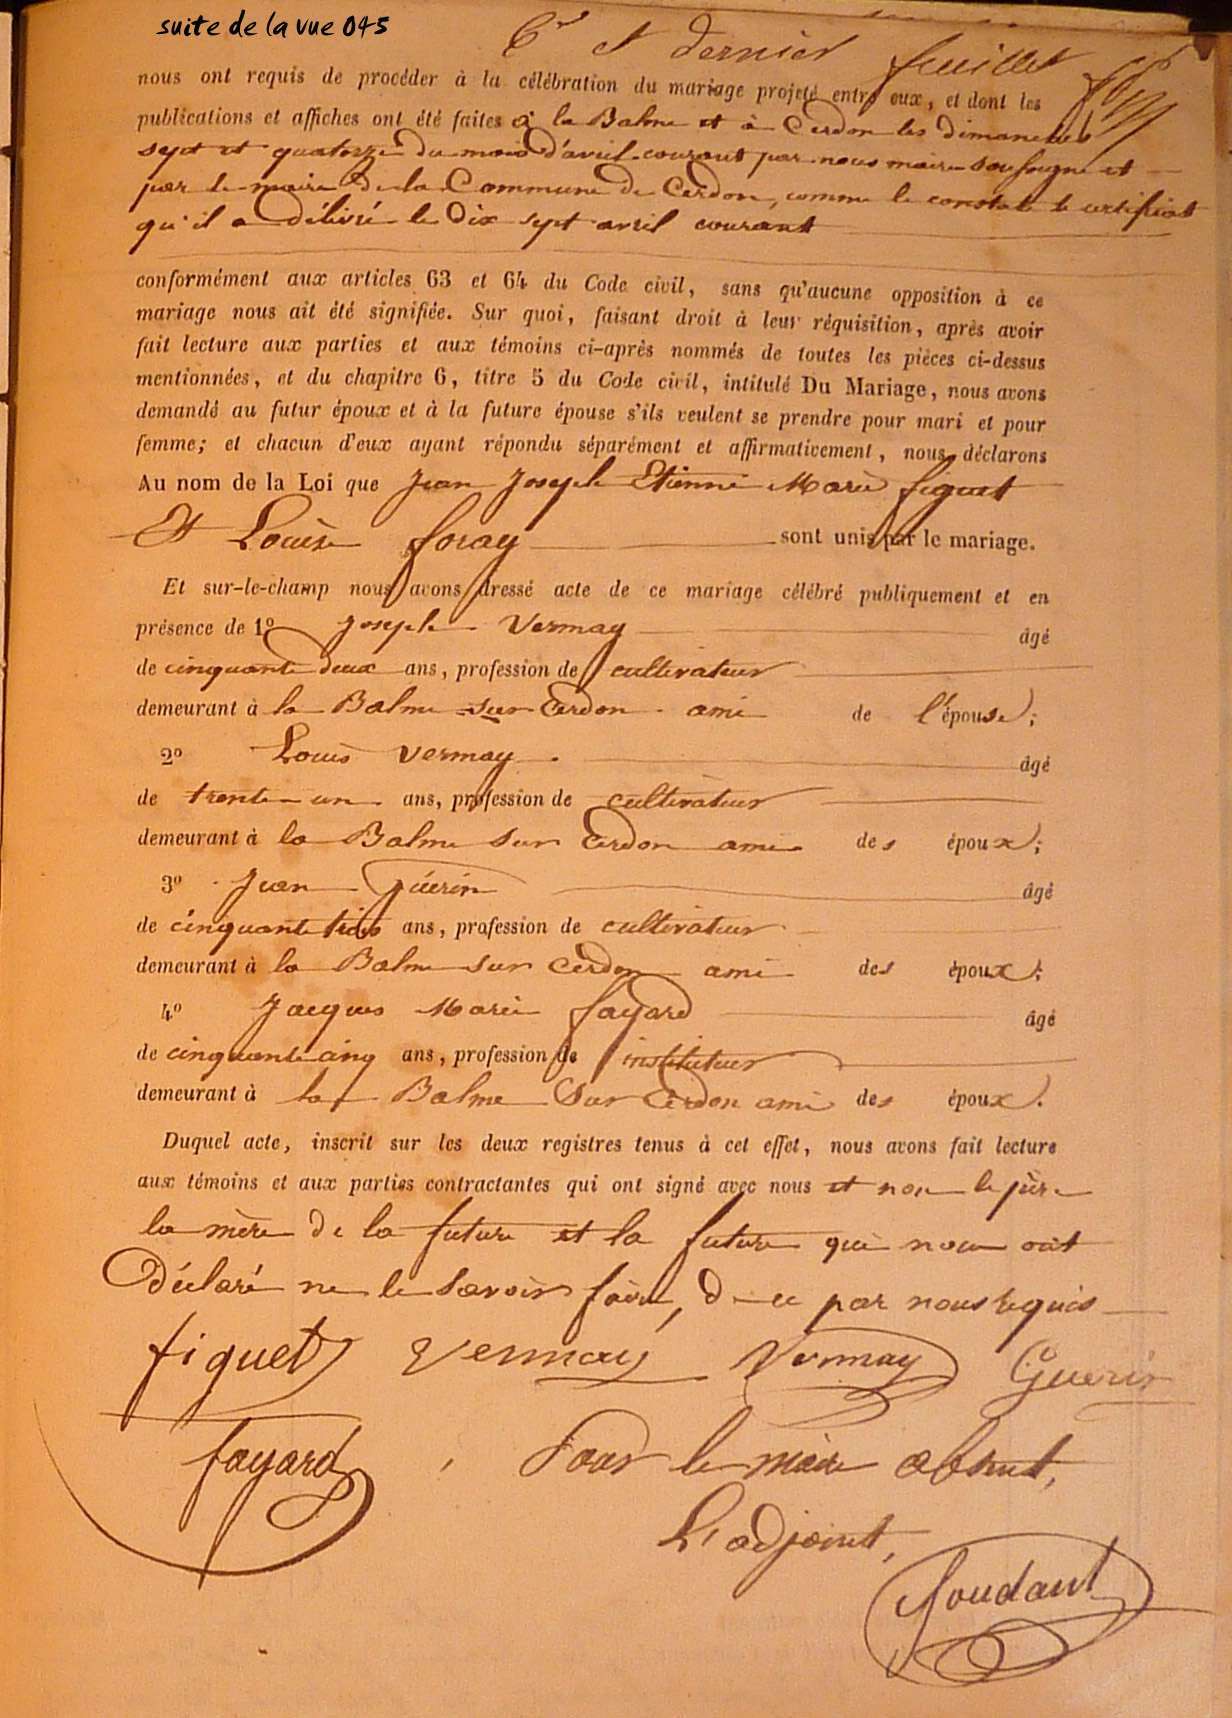 suite de la vue 045
6e et dernier feuillet
nous ont requis de procéder à la célébration du mariage projeté entre eux, et dont les
publications et affiches ont été faites à la Balme et à Cerdon les dimanches
sept et quatorze du mois d'avril courant par nous maire soussigné et
par le maire de la Commune de Cerdon, comme le constate le certificat
qu'il a délivré le dix sept avril courant
conformément aux articles 63 et 64 du Code civil, sans qu'aucune opposition à ce
mariage nous ait été signifiée. Sur quoi, faisant droit à leur réquisition, après avoir
fait lecture aux parties et aux témoins ci-après nommés de toutes les pièces ci-dessus
mentionnées, et du chapitre 6, titre 5 du Code civil, intitulé Du Mariage, nous avons
demandé au futur époux et à la future épouse s'ils veulent se prendre pour mari et pour
femme; et chacun d'eux ayant répondu séparément et affirmativement, nous déclarons
Au nom de la Loi que Jean Joseph Etienne Marie figuet
Et Louise foray sont unis par le mariage.
Et sur-le-champ nous avons dressé acte de ce mariage célébré publiquement et en
présence de 1º Joseph Vermay âgé
de cinquante deux ans, profession de cultivateur
demeurant à la Balme sur Cerdon ami de l'épouse;
2º Louis Vermay âgé
de trente un ans, profession de cultivateur
demeurant à la Balme sur Cerdon ami des époux;
3º Jean Guérin âgé
de cinquante trois ans, profession de cultivateur
demeurant à la Balme sur Cerdon ami des époux;
4º Jacques Marie fayard âgé
de cinquante cinq ans, profession de instituteur
demeurant à la Balme sur Cerdon ami des époux.
Duquel acte, inscrit sur les deux registres tenus à cet effet, nous avons fait lecture
aux témoins et aux parties contractantes qui ont signé avec nous et non le père
la mère de la future et la future qui nous ont
déclaré ne le savoir faire, de ce par nous requis
figuet Vermay Vermay Guerin
fayard Pour le maire absent,
L'adjoint,